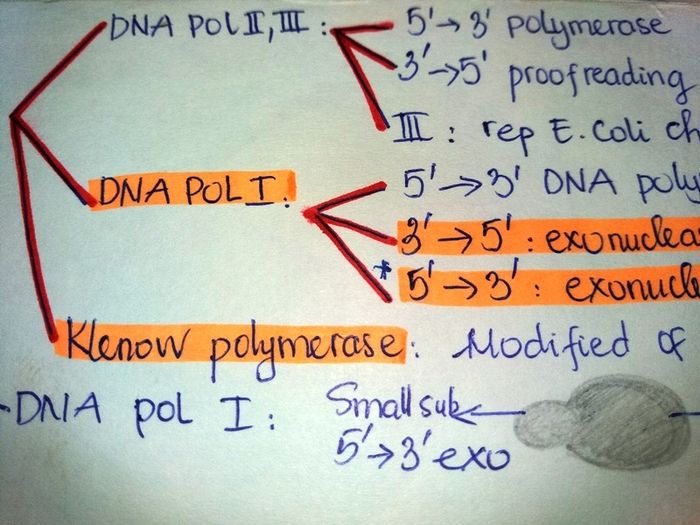 DNA POL II, III :
5' → 3' polymerase
3' → 5' proofreading
III : rep E. Coli ch
DNA POL I :
5' → 3' DNA poly
3' → 5' : exonuclea
* 5' → 3' : exonucle
Klenow polymerase : Modified of
-DNA pol I : Small sub
5' → 3' exo